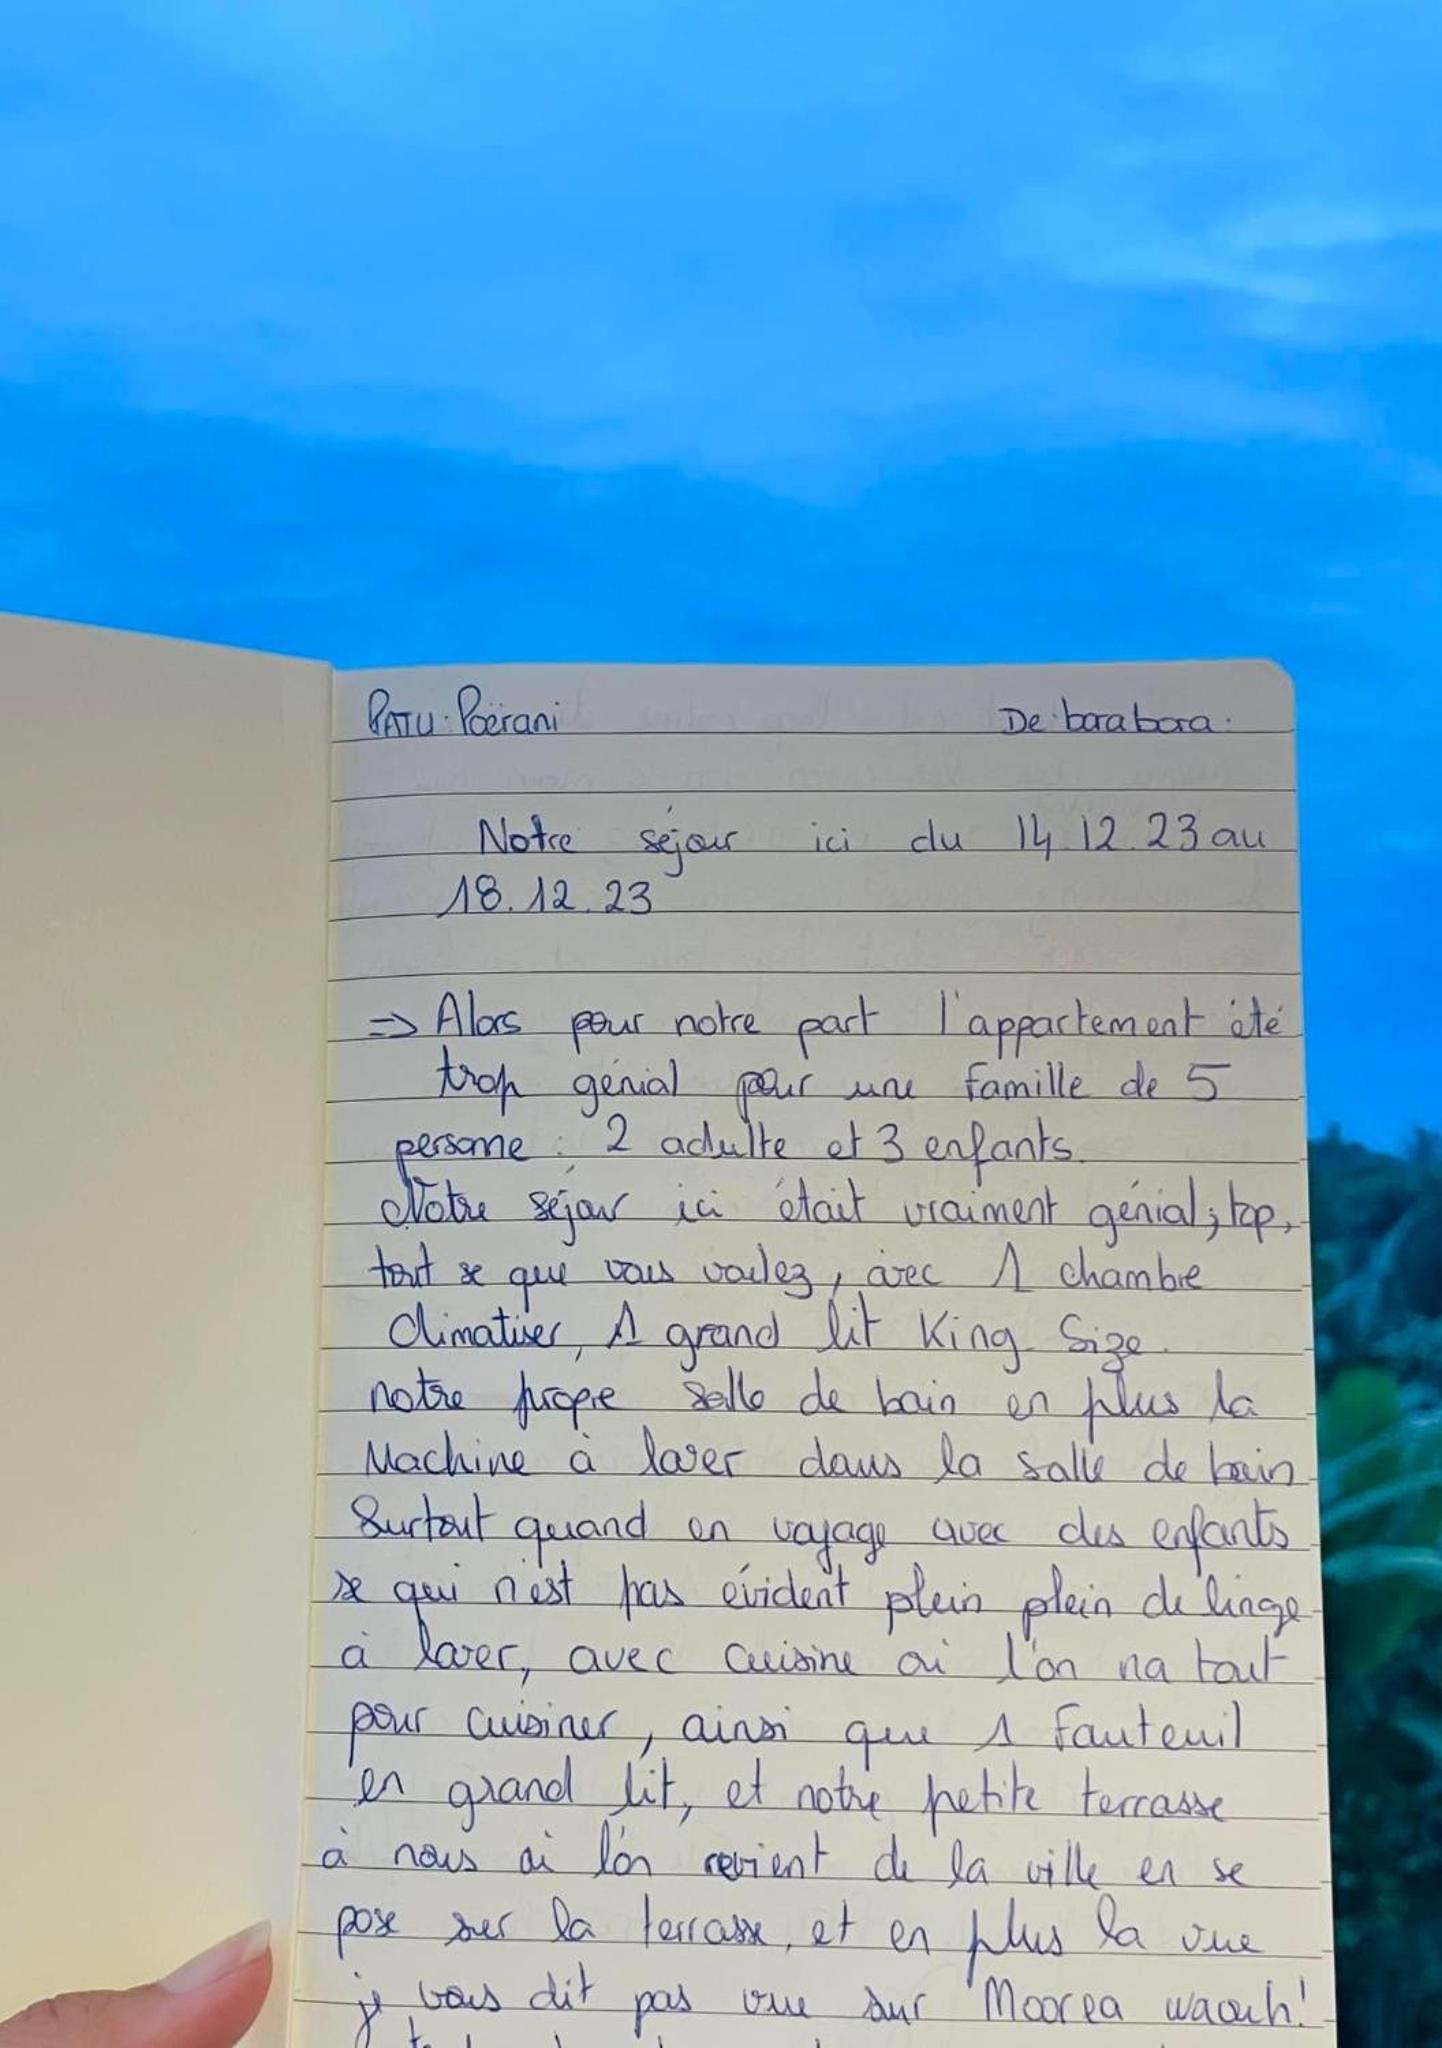 PATU: Poërani De: bora bora.
Notre séjour ici du 14.12.23 au
18.12.23
=> Alors pour notre part l'appartement été
trop génial pour une famille de 5
persone : 2 adulte et 3 enfants.
Notre séjour ici était vraiment génial, top,
tout se que vous voulez, avec 1 chambre
Climatiser, 1 grand lit King Size.
notre propre salle de bain en plus la
Machine à laver dans la salle de bain
Surtout quand on voyage avec des enfants
se qui n'est pas évident plein plein de linge
à laver, avec cuisine où l'on na tout
pour cuisiner, ainsi que 1 Fauteuil
en grand lit, et notre petite terrasse
à nous où l'on revient de la ville en se
pose sur la terrasse, et en plus la vue
je vous dit pas vue sur Moorea waouh!